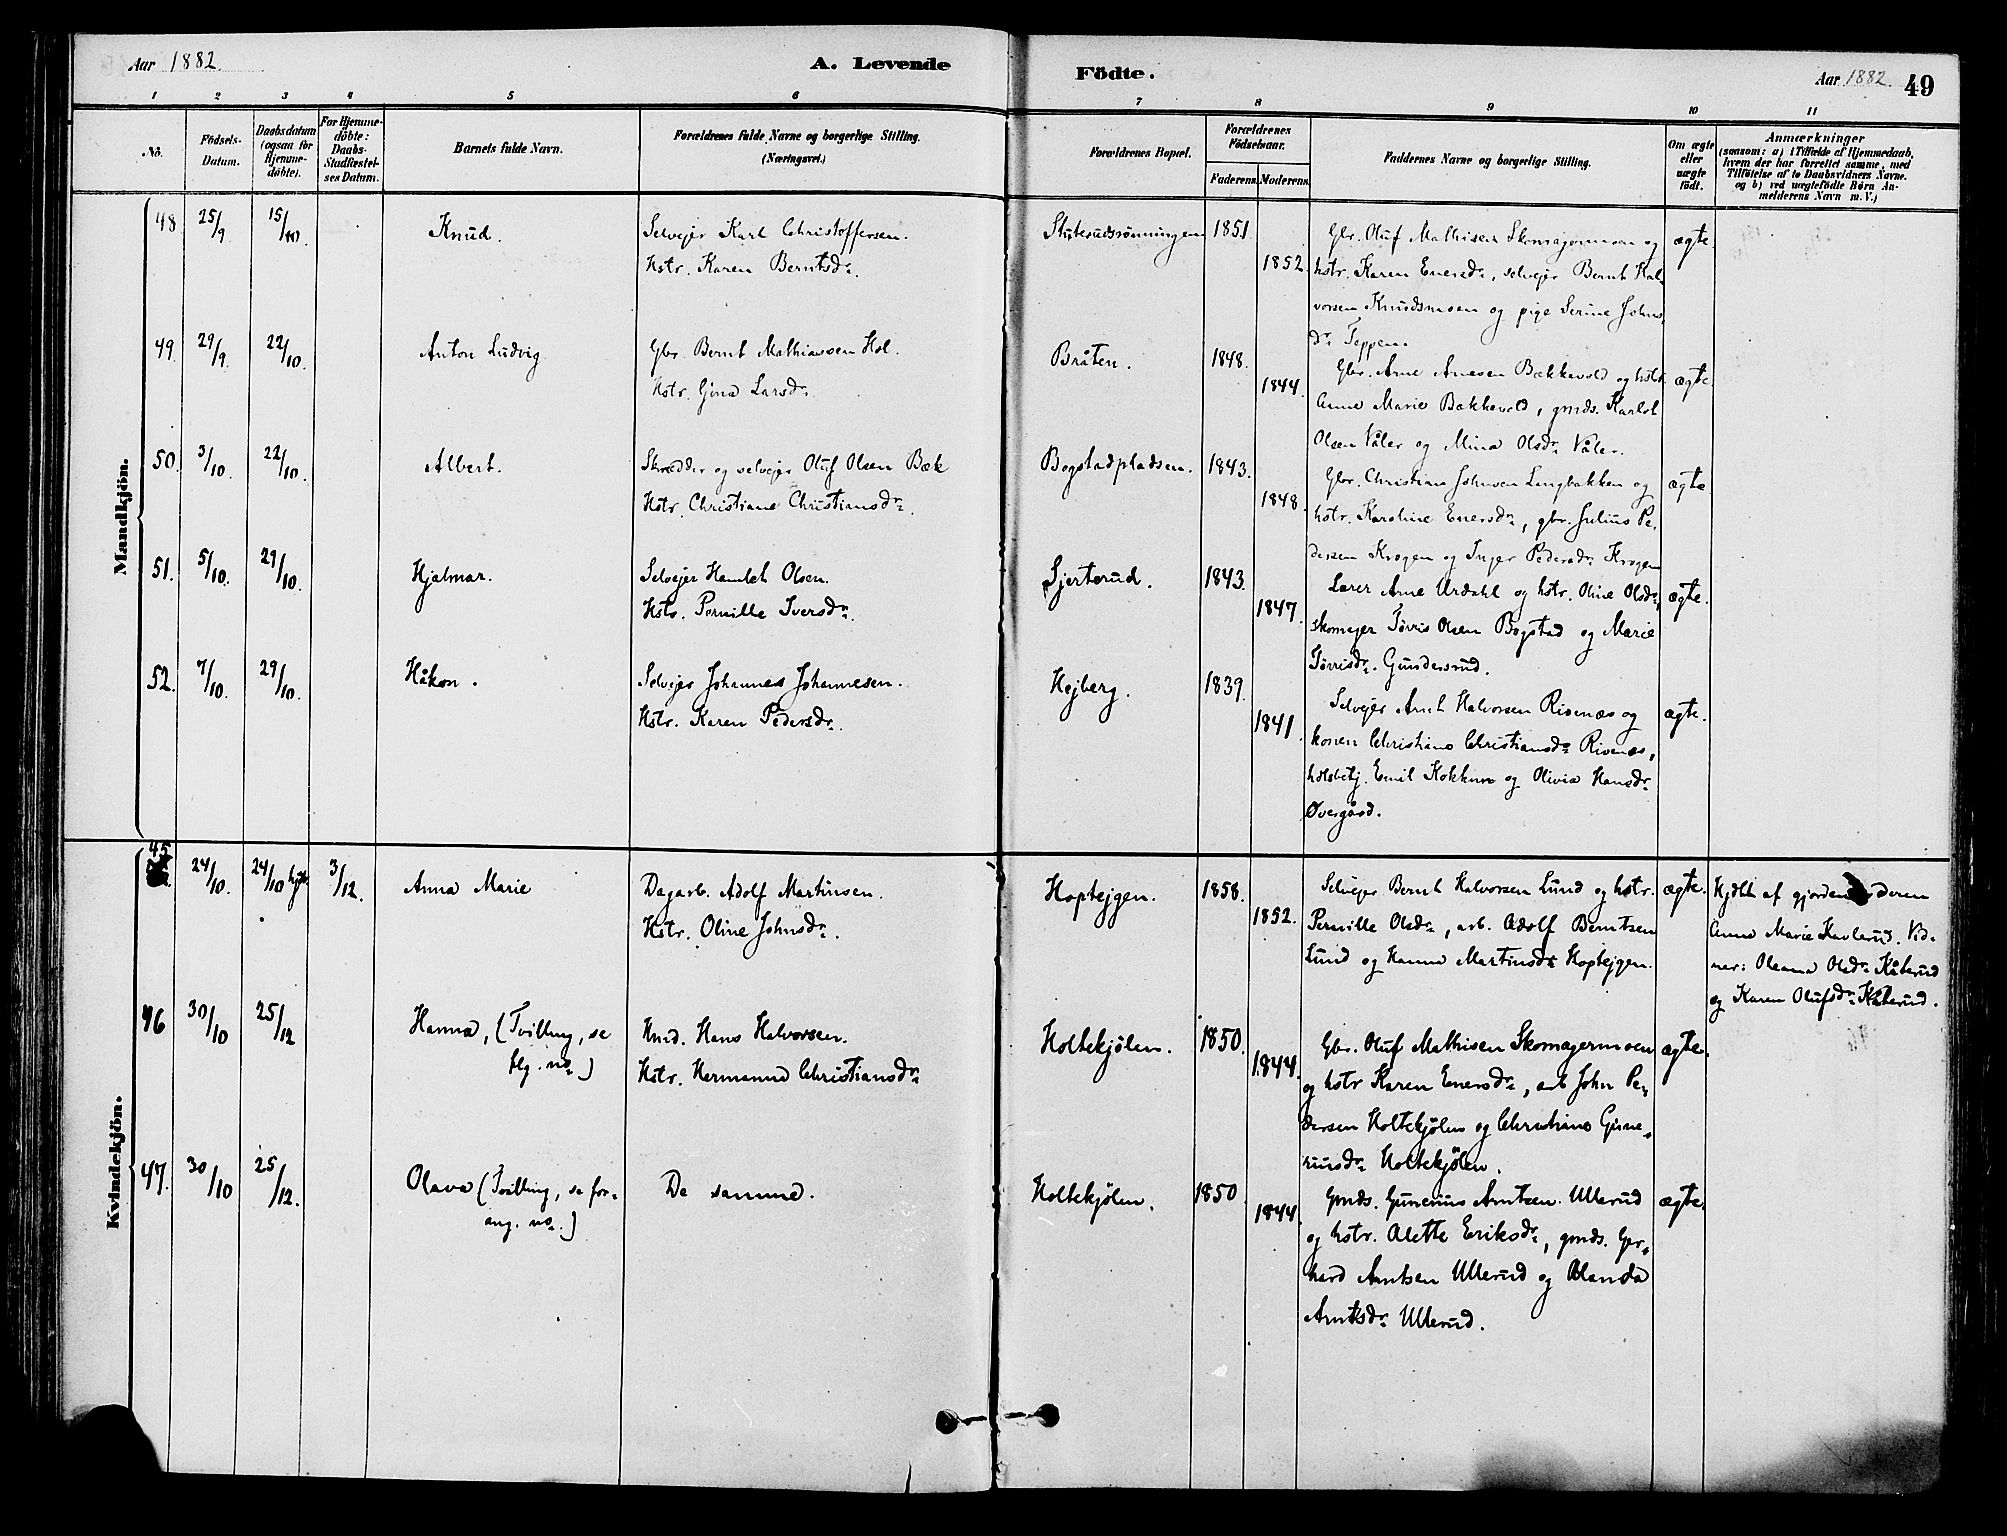 Aar 1882.
A. Levende
Födte.
Aar 1882.
49
1 2 3 4 5 6 7 8 9 10 11
No.
Födsels-
Datum.
Daabsdatum
(ogsaa for
Hjemme-
döbte).
For Hjemme-
döbte:
Daabs-
Stadfæstel-
ses Datum.
Barnets fulde Navn.
Forældrenes fulde Navne og borgerlige Stilling.
(Næringsvei.)
Forældrenes Bopæl.
Forældrenes
Födselsaar.
Faderens. Moderens.
Faddernes Navne og borgerlige Stilling.
Om ægte
eller
uægte
födt.
Anmærkninger
(saasom: a) i Tilfælde af Hjemmedaab,
hvem der har forrettet samme, med
Tilföielse af to Daabsvidners Navne.
og b) ved uægtefödte Börn An-
melderens Navn m.V.)
Mandkjön.
48. 25/9 15/10. Knud.
Selvejer Karl Christoffersen.
Hstr. Karen Berntsdr.
1851.
1852.
Gbr. Oluf Mathisen Skomagermoen og
hstr. Karen Enersdr., selvejer Bernt Hal-
vorsen Knudsmoen og pige Serine Johns-
dr. Teppen.
ægte
49. 29/9. 22/10. Anton Ludvig
Gbr. Bernt Mathiassen Hol.
Hstr. Gina Larsdr.
Bråten.
1848.
1844.
Gbr. Arne Arnesen Bækkevold og hstr.
Anne Marie Bækkevold, gmds. Karlot
Olsen Våler og Mina Olsdr. Våler.
ægte.
50. 3/10. 22/10. Albert.
Skrædder og selvejer Oluf Olsen Bæk
Hstr. Christiane Christiansdr.
Bogstadpladsen.
1843.
1848.
Gbr. Christian Johnsen Lungbakken og
hstr. Karoline Enersdr., gbr. Julius Pe-
dersen Krogen og Inger Pedersdr. Krogen
ægte
51. 5/10. 29/10. Hjalmar.
Selvejer Hamlet Olsen.
Hstr. Pernille Iversdr.
Gjerterud.
1843.
1847.
Lærer Arne Urdahl og hstr. Oline Olsdr.,
skomager Tørris Olsen Bogstad og Marie
Tørrisdr. Gundersrud.
ægte.
52. 7/10. 29/10. Håkon.
Selvejer Johannes Johannesen.
Hstr. Karen Pedersdr.
Hejberg.
1839.
1841.
Selvejer Arnt Halvorsen Risenæs og
konen Christiane Christiansdr. Risenæs,
Emil Kokkim og Olivia Hansdr.
Øvergård.
ægte.
Kvindekjön.
45 24/10. 24/10 hjdt 3/12. Anna Marie
Dagarb. Adolf Martinsen.
Hstr. Oline Johnsdr.
Hoptejgen.
1858.
1852.
Selvejer Bernt Halvorsen Lund og hstr.
Pernille Olsdr., arb. Adolf Berntsen
Lund og Hanna Martinsdr. Hoptejgen.
ægte.
Hjdbt af gjordemoderen
Anne Marie Kaalerud. Vid-
ner: Oleana Olsdr. Kåterud
og Karen Olufsdr. Kåterud.
46 30/10 25/12 Hanna, (Tvilling, se
flg. no.)
Hmd. Hans Halvorsen.
Hstr. Hermanna Christiansdr.
Holtekjølen.
1850.
1844.
Gbr. Oluf Mathisen Skomagermoen
og hstr Karen Enersdr., arb John Pe-
dersen Holtekjølen og Christiane Gune-
riusdr. Holtekjølen.
ægte.
47. 30/10 25/12. Olava (Tvilling, se for-
ang. no.)
De samme.
Holtekjølen.
1850
1844.
Gmds. Gunerius Arntsen Ullerud
og hstr. Alette Eriksdr., gmds. Ger-
hard Arntsen Ullerud og Olanda
Arntsdr. Ullerud.
ægte.